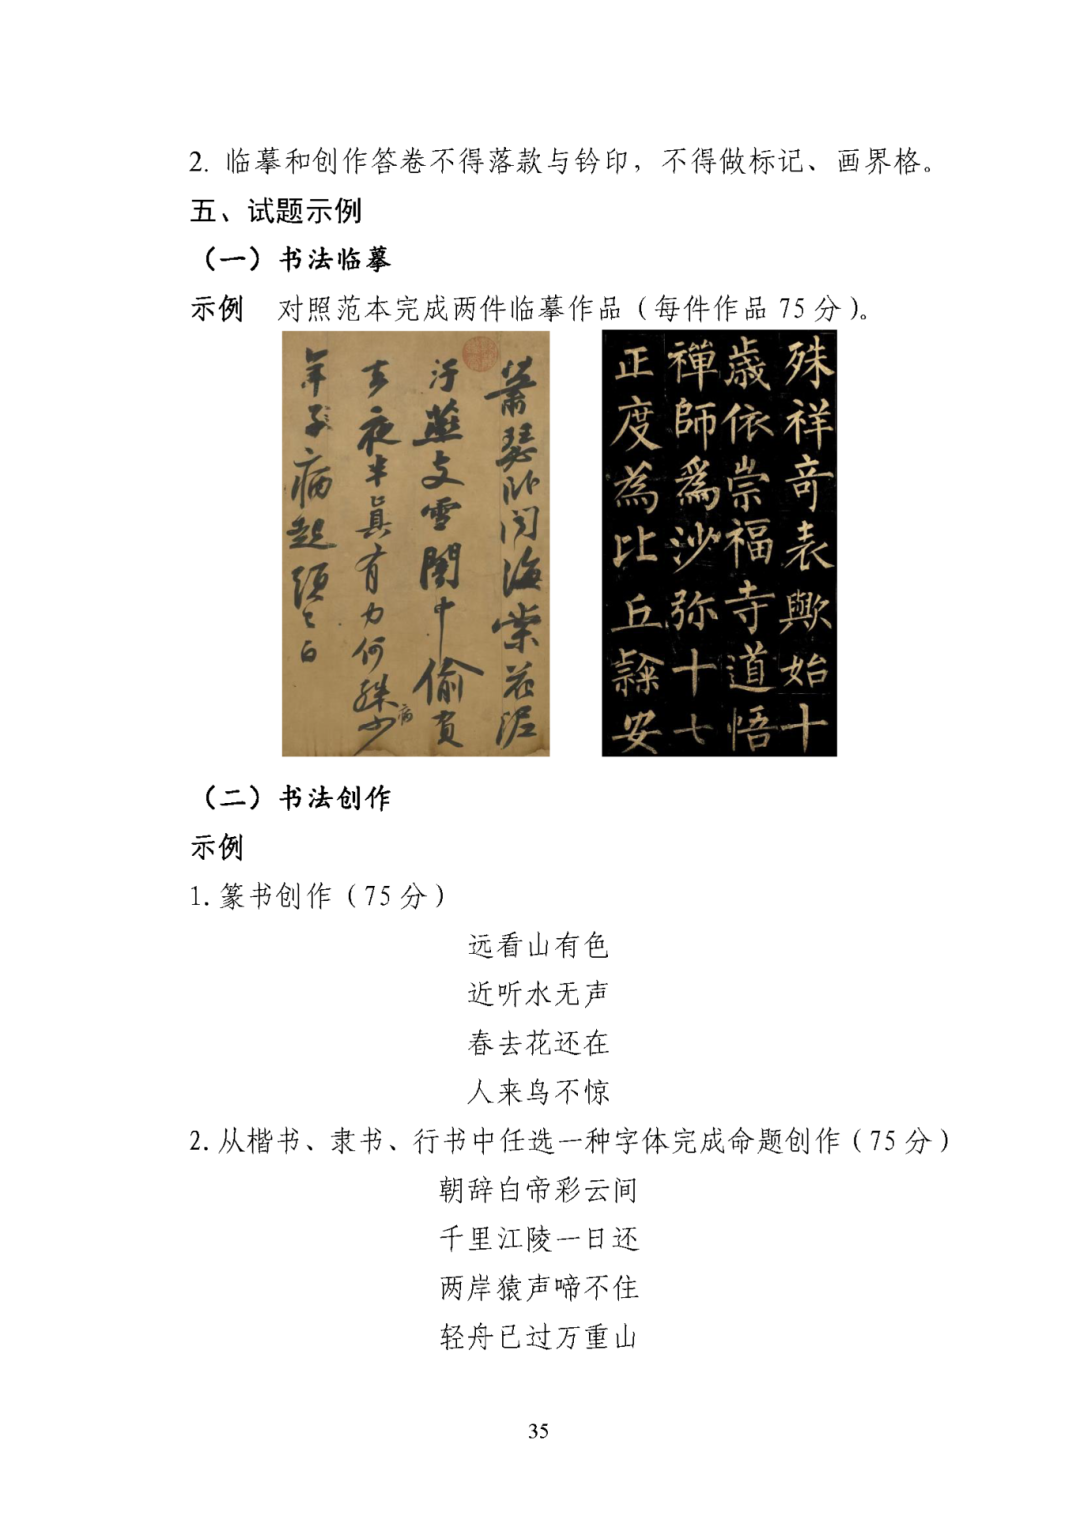 2. 临摹和创作答卷不得落款与钤印，不得做标记、画界格。
五、试题示例
（一）书法临摹
示例　对照范本完成两件临摹作品（每件作品 75 分）。
萧瑟卧闻海棠花泥
汙燕支雪闇中偷負
去夜半真有力何殊少
年子病起須已白
病
殊祥奇表歟始十
歳依崇福寺道悟
禪師爲沙弥十七
正度為比丘隸安
（二）书法创作
示例
1. 篆书创作（75 分）
远看山有色
近听水无声
春去花还在
人来鸟不惊
2. 从楷书、隶书、行书中任选一种字体完成命题创作（75 分）
朝辞白帝彩云间
千里江陵一日还
两岸猿声啼不住
轻舟已过万重山
35